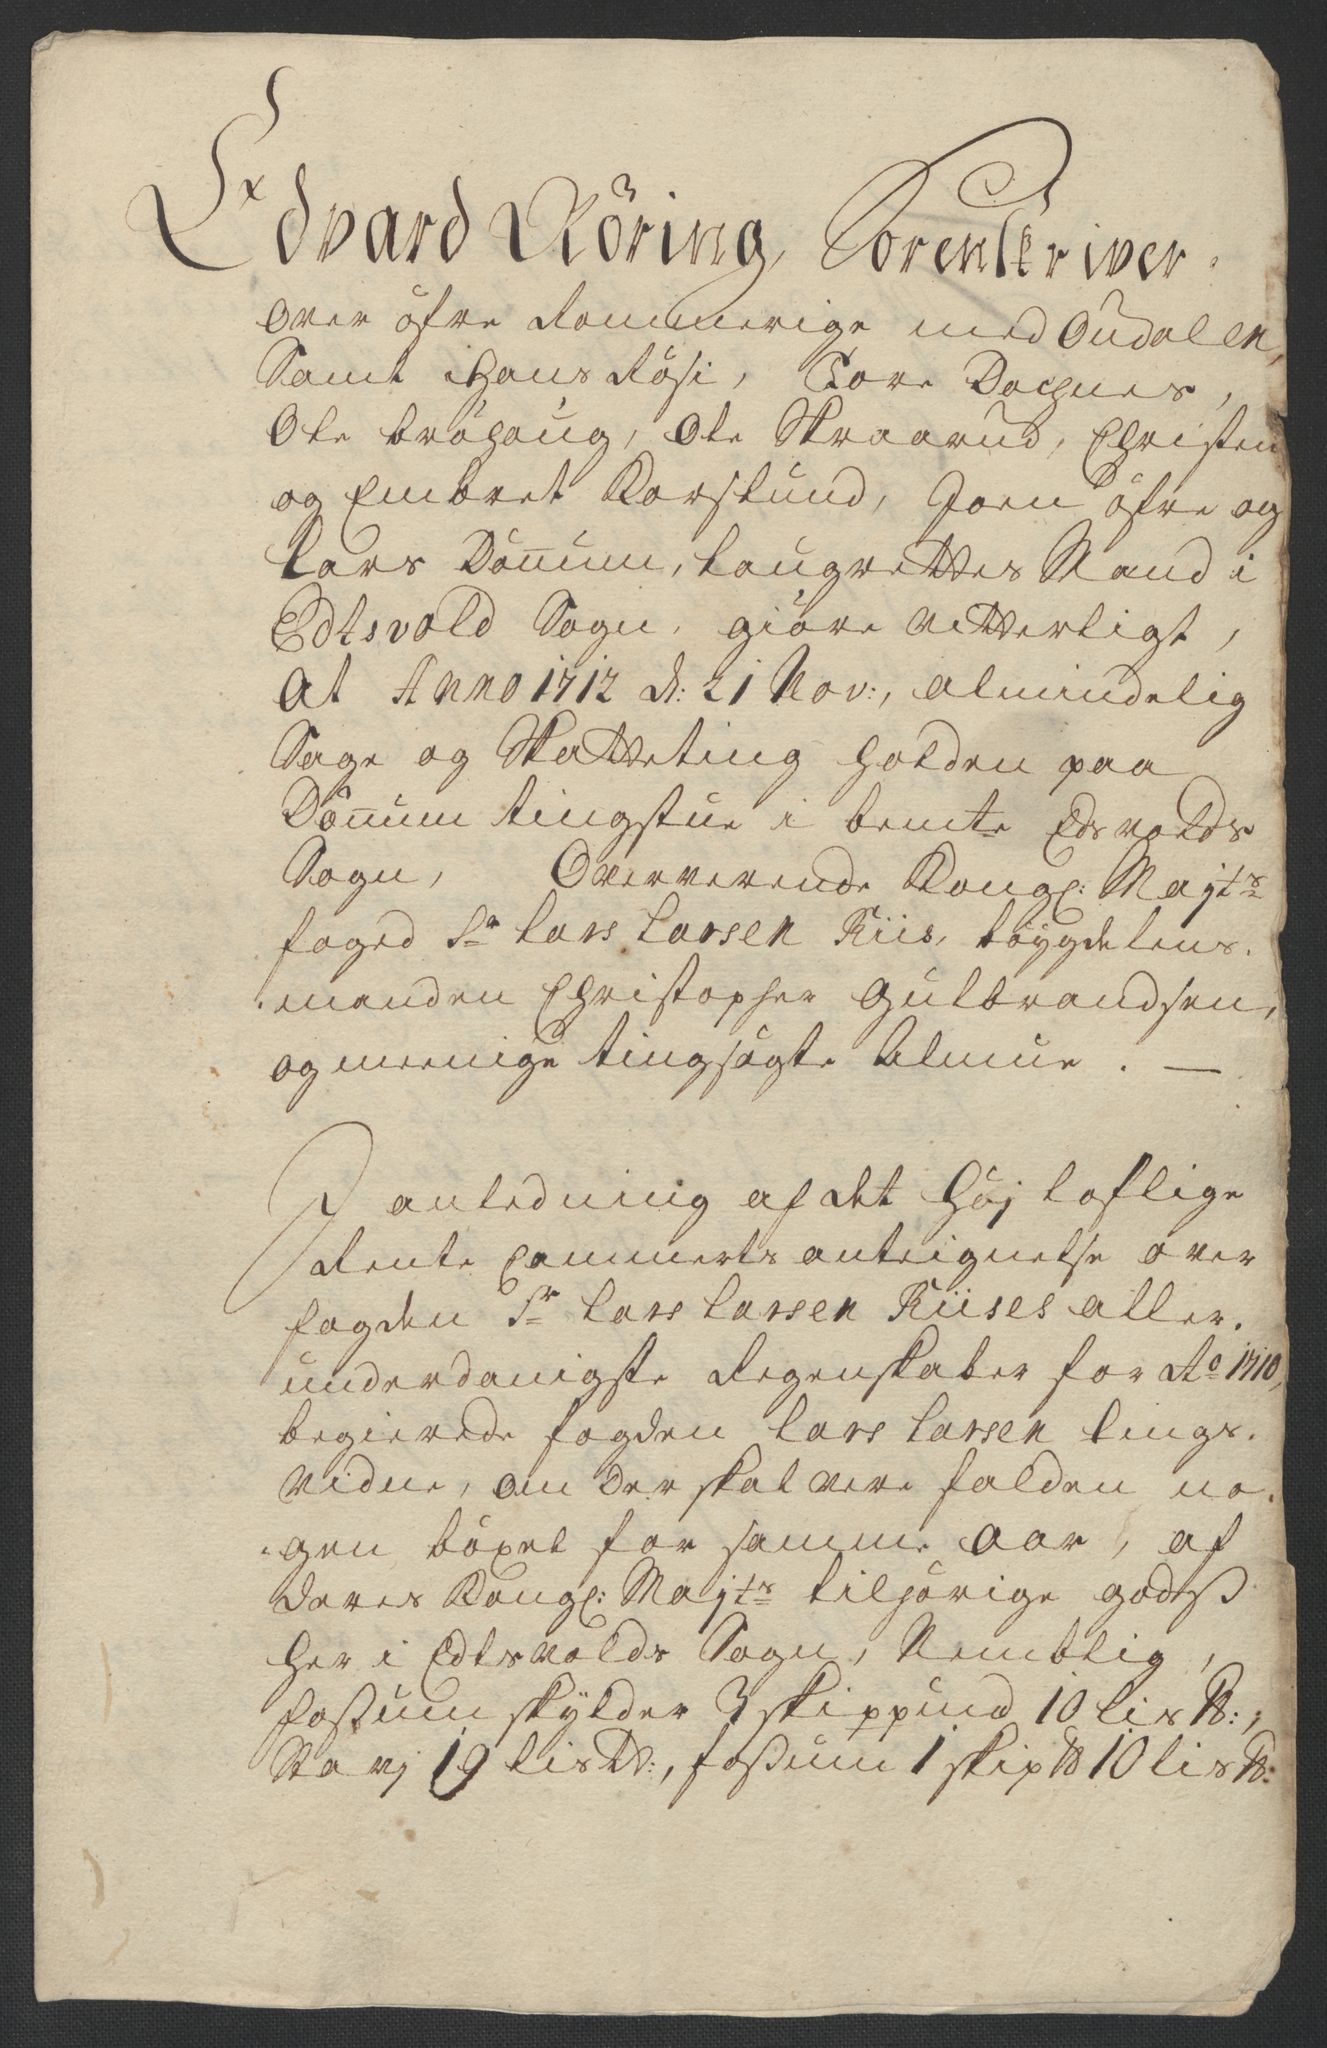 Edvard Röring, Sorenskriver
over öfre Rommerige med Oudalen,
Samt Hans Rösi, Tore Dochnes,
Ole bröhaug, Ole Skraarud, Christen
og Embret Korslund, Joen öfre og
Lars Dönnum, Laugrettes Mænd i
Edtsvold Sogn, giöre vitterligt,
At Anno 1712 d: 21 Nov:, almindelig
Sage og Skatteting holden paa
Dönnum tingstue i bemte Edsvolds
Sogn, Oververende Kongl: Majts
foged Sr Lars Larsen Riis, böygdelens-
manden Christopher Gulbrandsen,
og meenige tingsögte Almue. —
I anledning af det Höj loflige
Rente Cammerts anteignelse over
fogden Sr Lars Larsen Riises aller-
underdanigste Regenskaber for Ao 1710,
begierede fogden Lars Larsen tings-
vidne, om der skal vere falden no-
gen böxel for samme aar, af
deres Kongl: Majts tilhörige godtß
her i Edtsvolds Sogn, Nemblig,
foßum skylder 3 skippund 10 lis ℔:,
19 lis ℔:, foßum 1 skip ℔ 10 lis ℔: